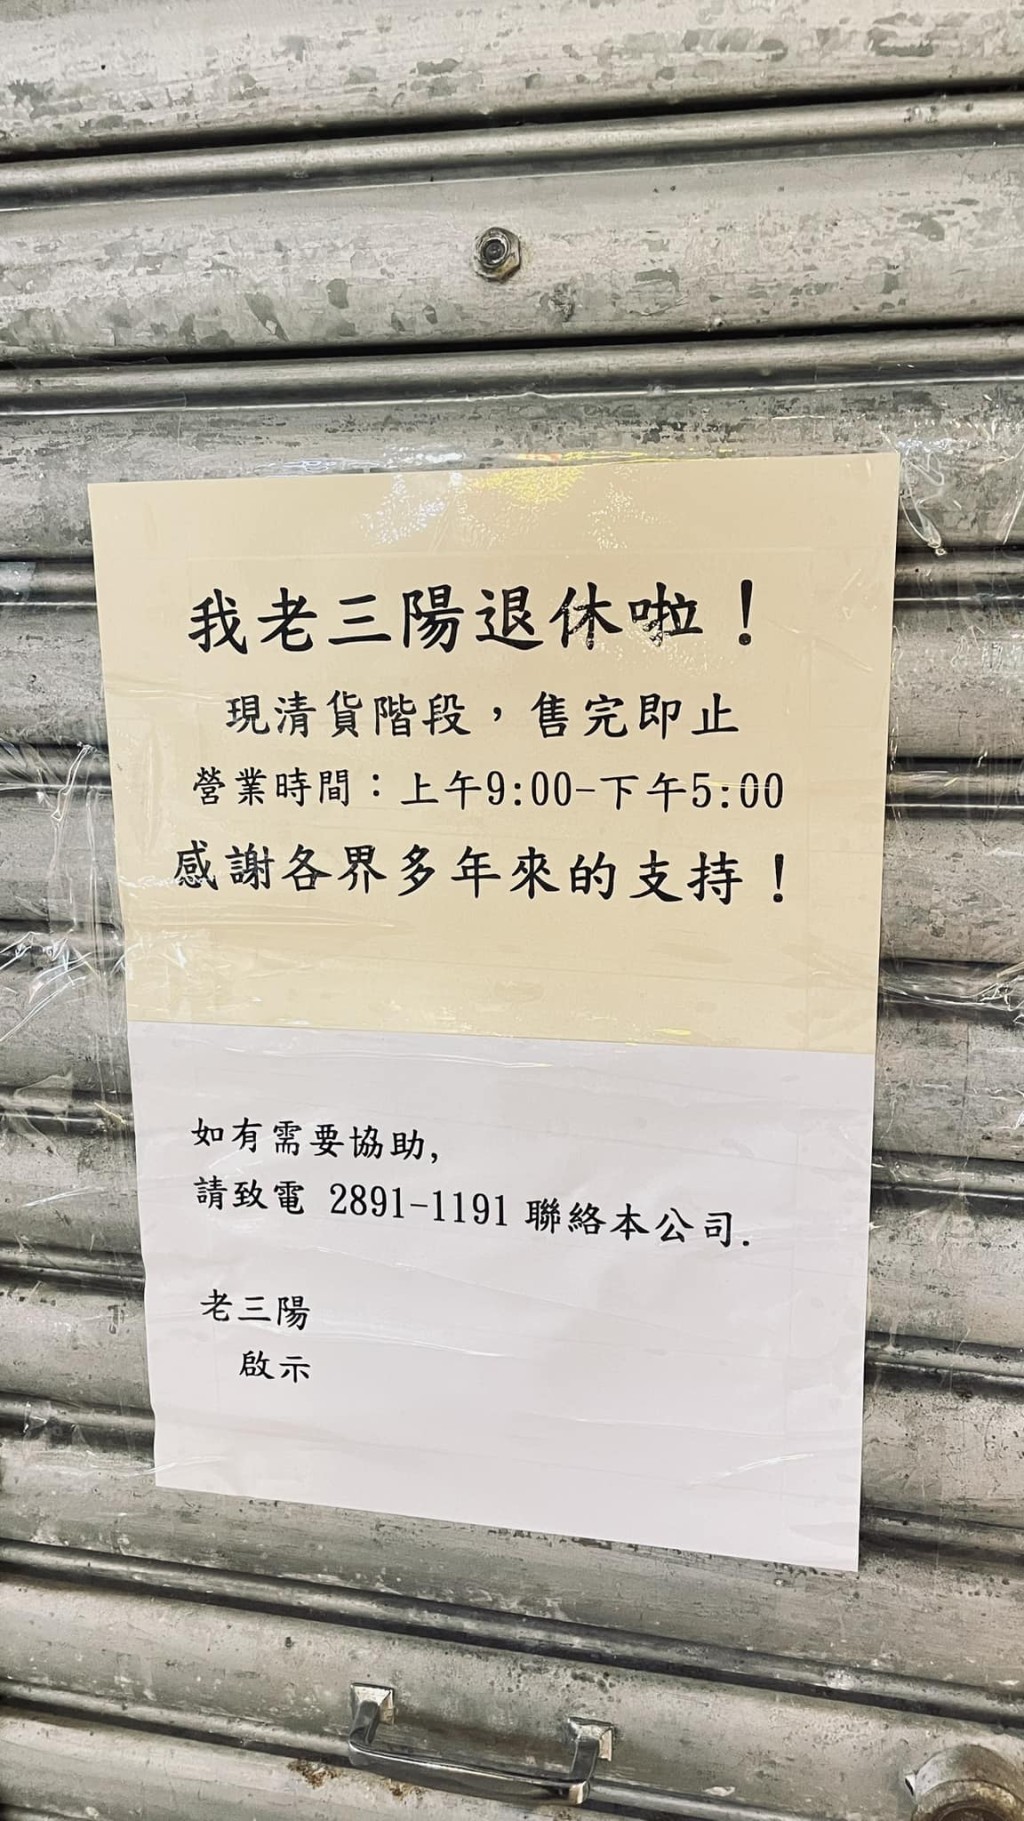 我老三陽退休啦！
現清貨階段，售完即止
營業時間：上午9:00-下午5:00
感謝各界多年來的支持！
如有需要協助,
請致電 2891-1191 聯絡本公司.
老三陽
啟示